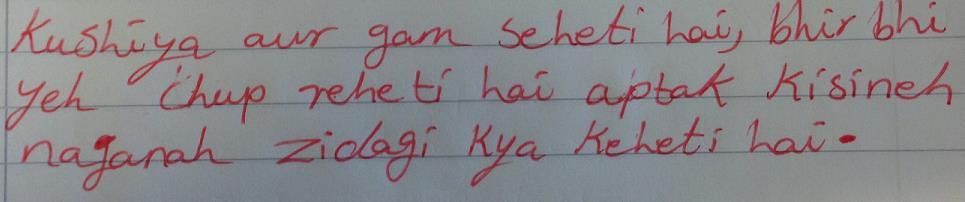 Kushiya aur gam seheti hai, bhir bhi
yeh chup reheti hai aptak kisineh
najanah zidagi kya keheti hai.